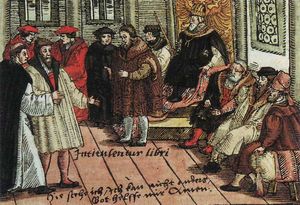 Intitulentur libri
Hie stehe ich, Ich kan nicht anders.
Got helffe mir Amen.